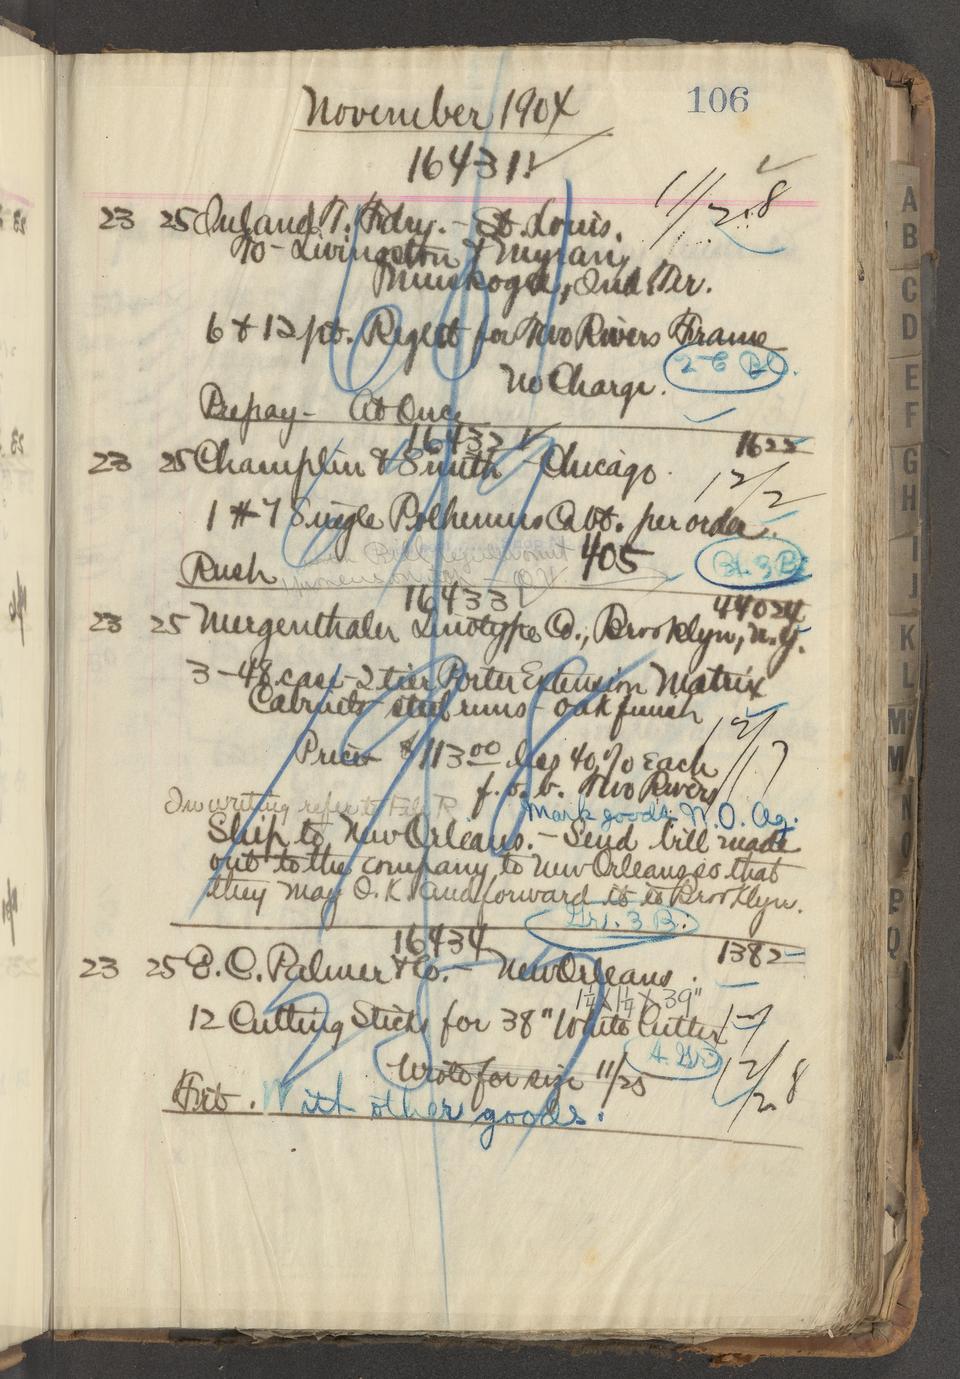 106
November 190X
16431
23 25 Inland T. Fdry. – St. Louis. 11/28
To – Livingston & Myran,
Muskogee, Ind. Ter.
6 & 12 pt. Reglet for Two Rivers Frame
2 C Bl.
No Charge.
Prepay – At Once
16432 1622
23 25 Champlin & Smith – Chicago. 12/2
1 #7 Single Polhemus Cabt. per order.
405 Bl. 3 B.
Rush
16433 44024
23 25 Mergenthaler Linotype Co., Brooklyn, N.Y.
3 – 48 case – 2 tier Porter Extension Matrix
Cabinets – steel runs – oak finish
Price $113.00 less 40% Each 12/17
f. o. b. Two Rivers
In writing refer to File R Mark goods N.O. Ag.
Ship to New Orleans. – Send bill made
out to the company, to New Orleans so that
they may O.K. and forward it to Brooklyn.
Gr. 3 B.
16434 1382
23 25 E. C. Palmer & Co. – New Orleans.
1¼ x 1¼ x 39"
12 Cutting Sticks for 38" White Cutter
4 Gr.
Wrote for size 11/25 12/28
Frt. With other goods.
A
B
C
D
E
F
G
H
I
J
K
L
M
M
N
O
P
Q